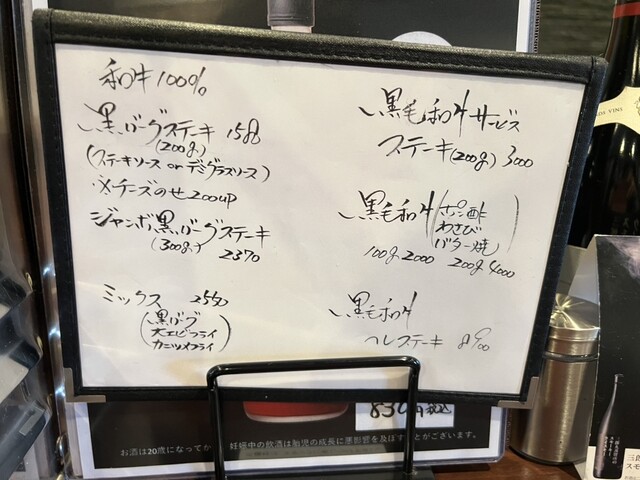 和牛100%
黒バーグステーキ 1580
(200g)
(ステーキソース or デミグラスソース)
※チーズのせ 200up
ジャンボ黒バーグステーキ
(300g) 2370
ミックス 2550
(黒バーグ
大エビフライ
カニツメフライ)
黒毛和牛サービス
ステーキ(200g) 3000
黒毛和牛(ポン酢
わさび
バター焼)
100g 2000 200g 4000
黒毛和牛
ヘレステーキ 8900
830円税込
お酒は20歳になってか
妊娠中の飲酒は胎児の成長に悪影響を及ぼすことがございます。